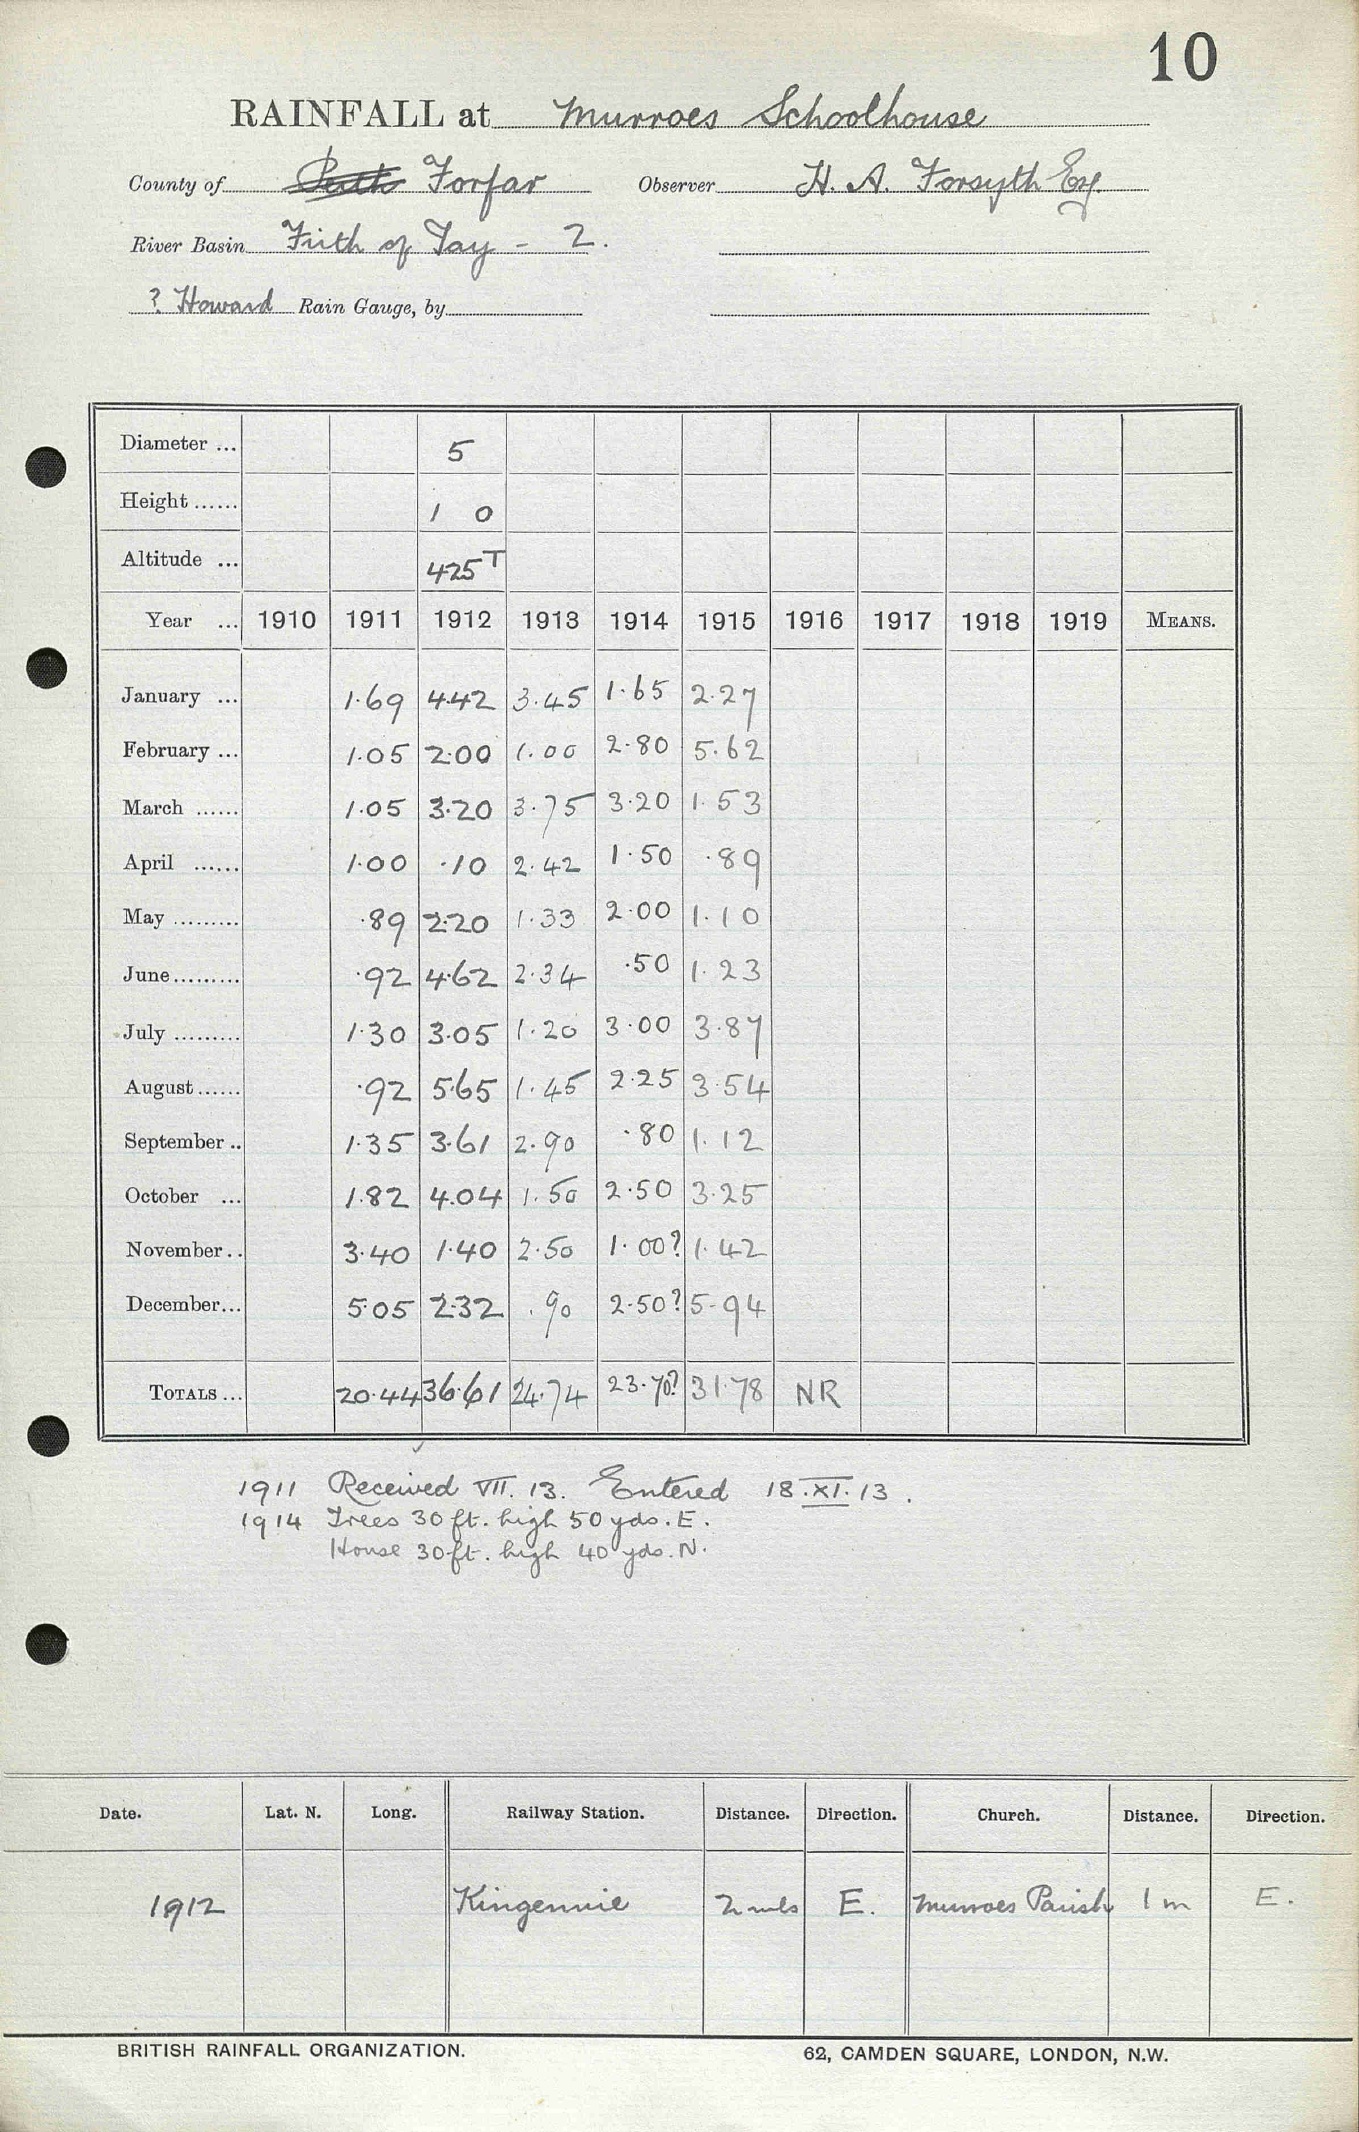 10
RAINFALL at Murroes Schoolhouse
County of Perth Forfar Observer H. A. Forsyth Esq.
River Basin Firth of Tay - 2.
? Howard Rain Gauge, by
Diameter ... 5
Height ...... 1 0
Altitude ... 425 T
Year ... 1910 1911 1912 1913 1914 1915 1916 1917 1918 1919 MEANS.
January ... 1.69 4.42 3.45 1.65 2.27
February ... 1.05 2.00 1.00 2.80 5.62
March ...... 1.05 3.20 3.75 3.20 1.53
April ...... 1.00 .10 2.42 1.50 .89
May ......... .89 2.20 1.33 2.00 1.10
June ......... .92 4.62 2.34 .50 1.23
July ......... 1.30 3.05 1.20 3.00 3.87
August ...... .92 5.65 1.45 2.25 3.54
September .. 1.35 3.61 2.90 .80 1.12
October ... 1.82 4.04 1.50 2.50 3.25
November .. 3.40 1.40 2.50 1.00? 1.42
December ... 5.05 2.32 .90 2.50? 5.94
TOTALS ... 20.44 36.61 24.74 23.70? 31.78 NR
1911 Received VII. 13. Entered 18.XI.13.
1914 Trees 30 ft. high 50 yds. E.
House 30 ft. high 40 yds. N.
Date. Lat. N. Long. Railway Station. Distance. Direction. Church. Distance. Direction.
1912 Kingennie 2 mls E. Murroes Parish 1 m E.
BRITISH RAINFALL ORGANIZATION. 62, CAMDEN SQUARE, LONDON, N.W.